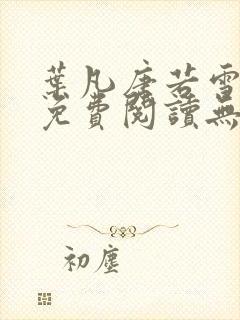 葉凡唐若雪
免費閱讀無
初塵